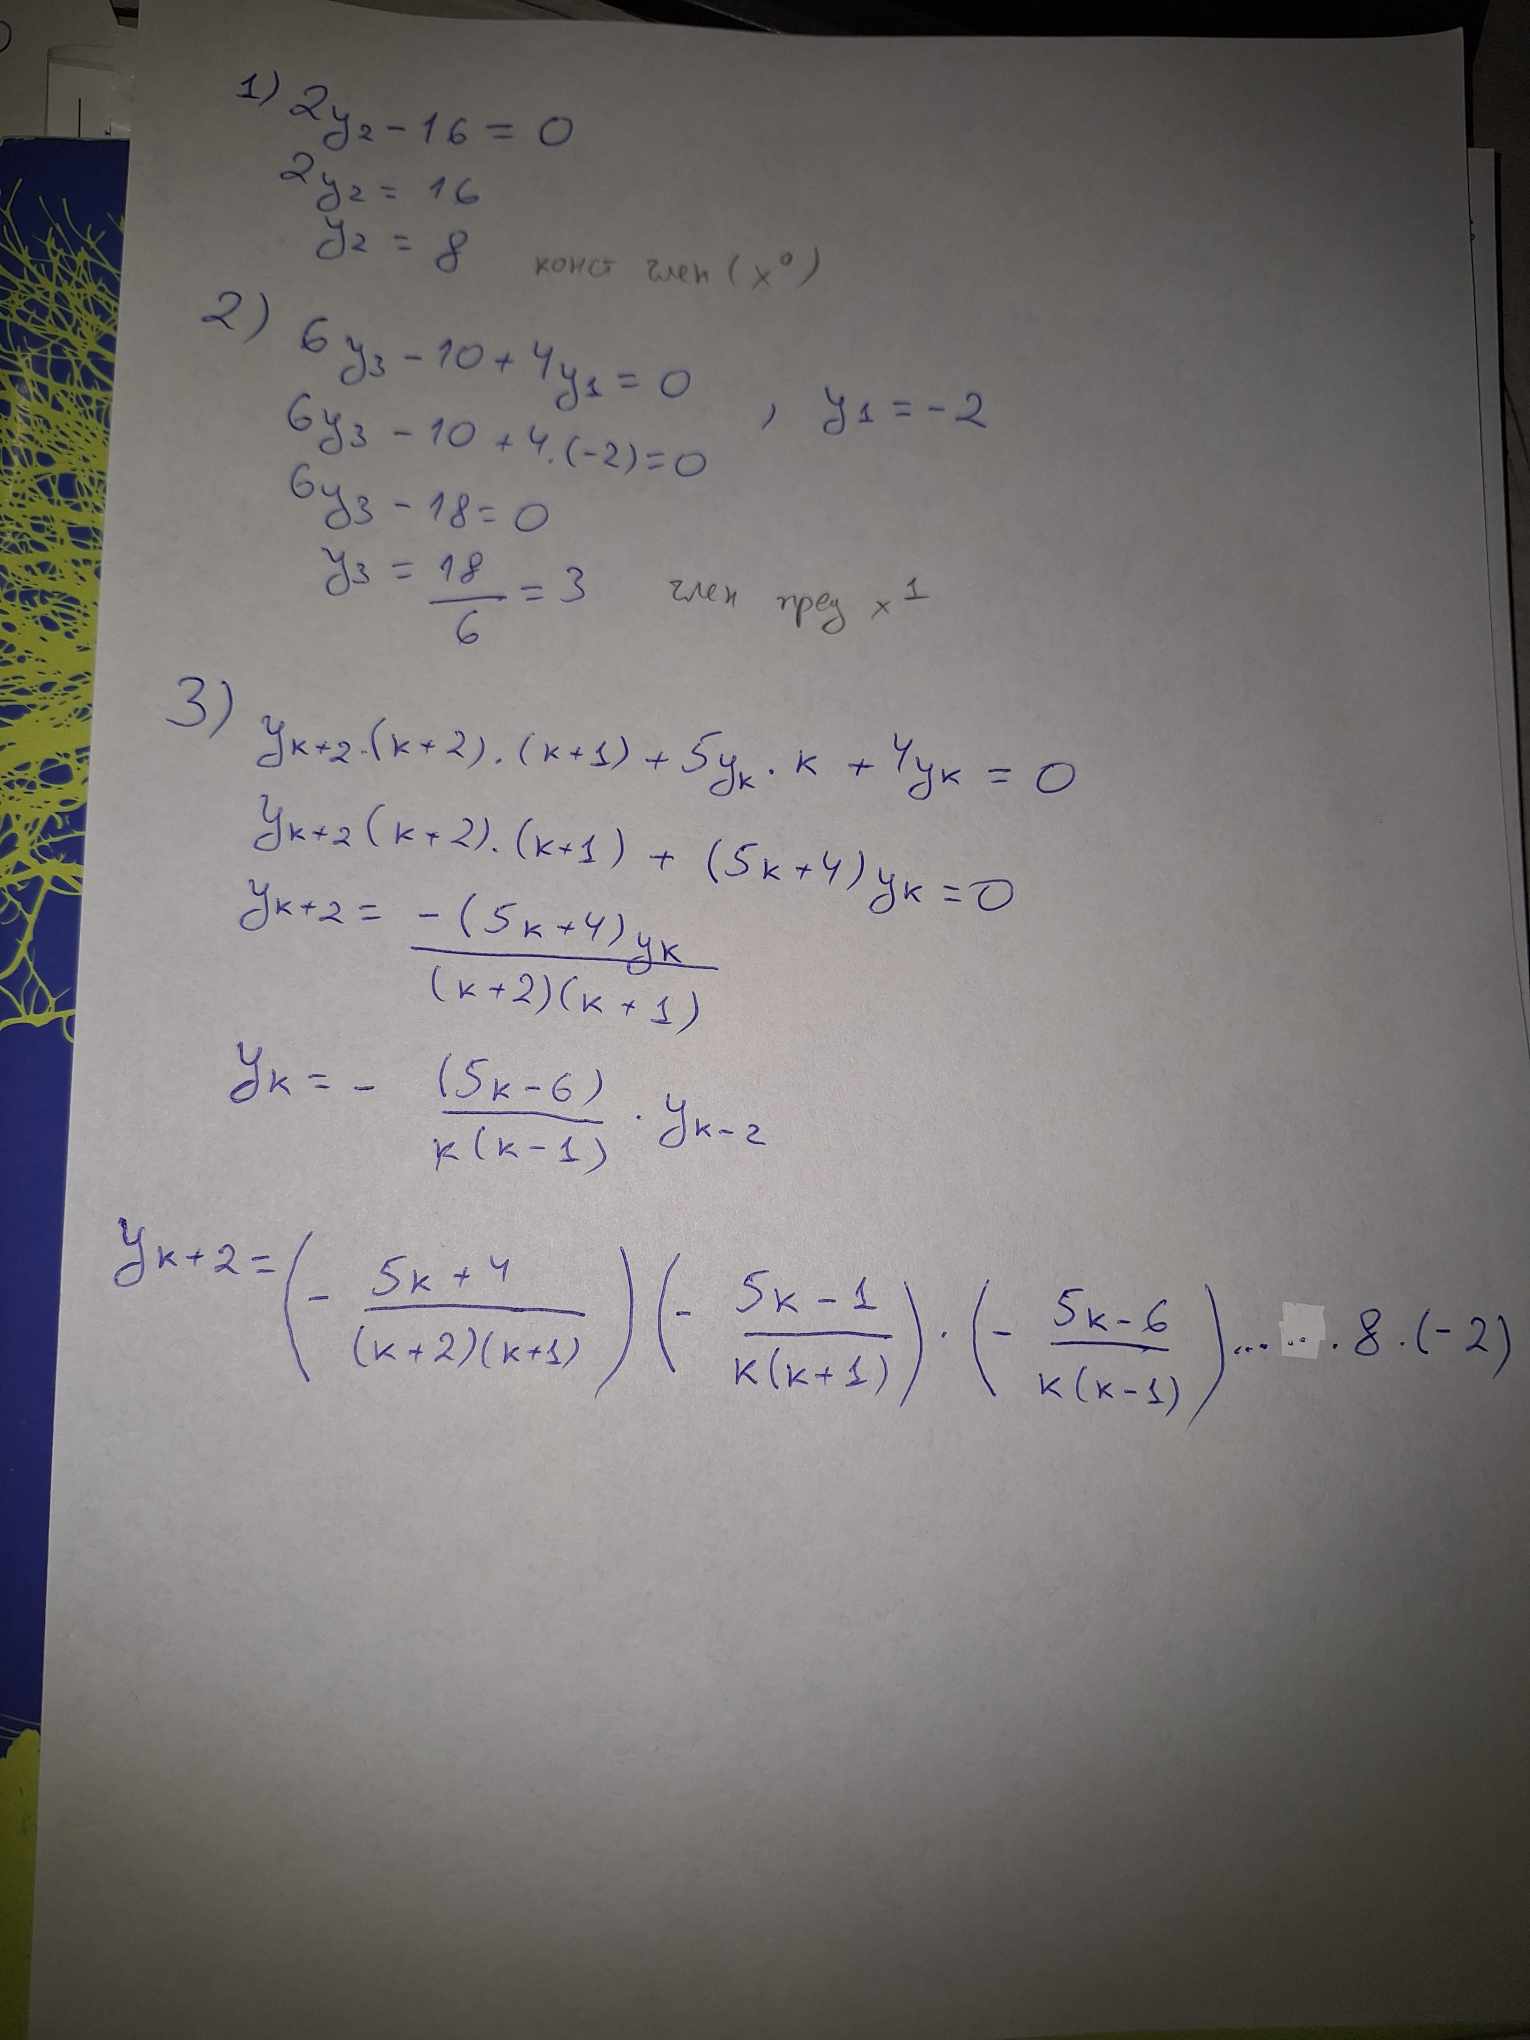 1) 2y₂ - 16 = 0
2y₂ = 16
y₂ = 8 конст член (x⁰)
2) 6y₃ - 10 + 4y₁ = 0 , y₁ = -2
6y₃ - 10 + 4.(-2) = 0
6y₃ - 18 = 0
y₃ = 18/6 = 3 член пред x¹
3) yₖ₊₂.(k+2).(k+1) + 5yₖ.k + 4yₖ = 0
yₖ₊₂(k+2).(k+1) + (5k+4)yₖ = 0
yₖ₊₂ = -(5k+4)yₖ / (k+2)(k+1)
yₖ = - (5k-6) / k(k-1) . yₖ₋₂
yₖ₊₂ = (- 5k+4 / (k+2)(k+1)) (- 5k-1 / k(k+1)) . (- 5k-6 / k(k-1)) ..... . 8 .(-2)